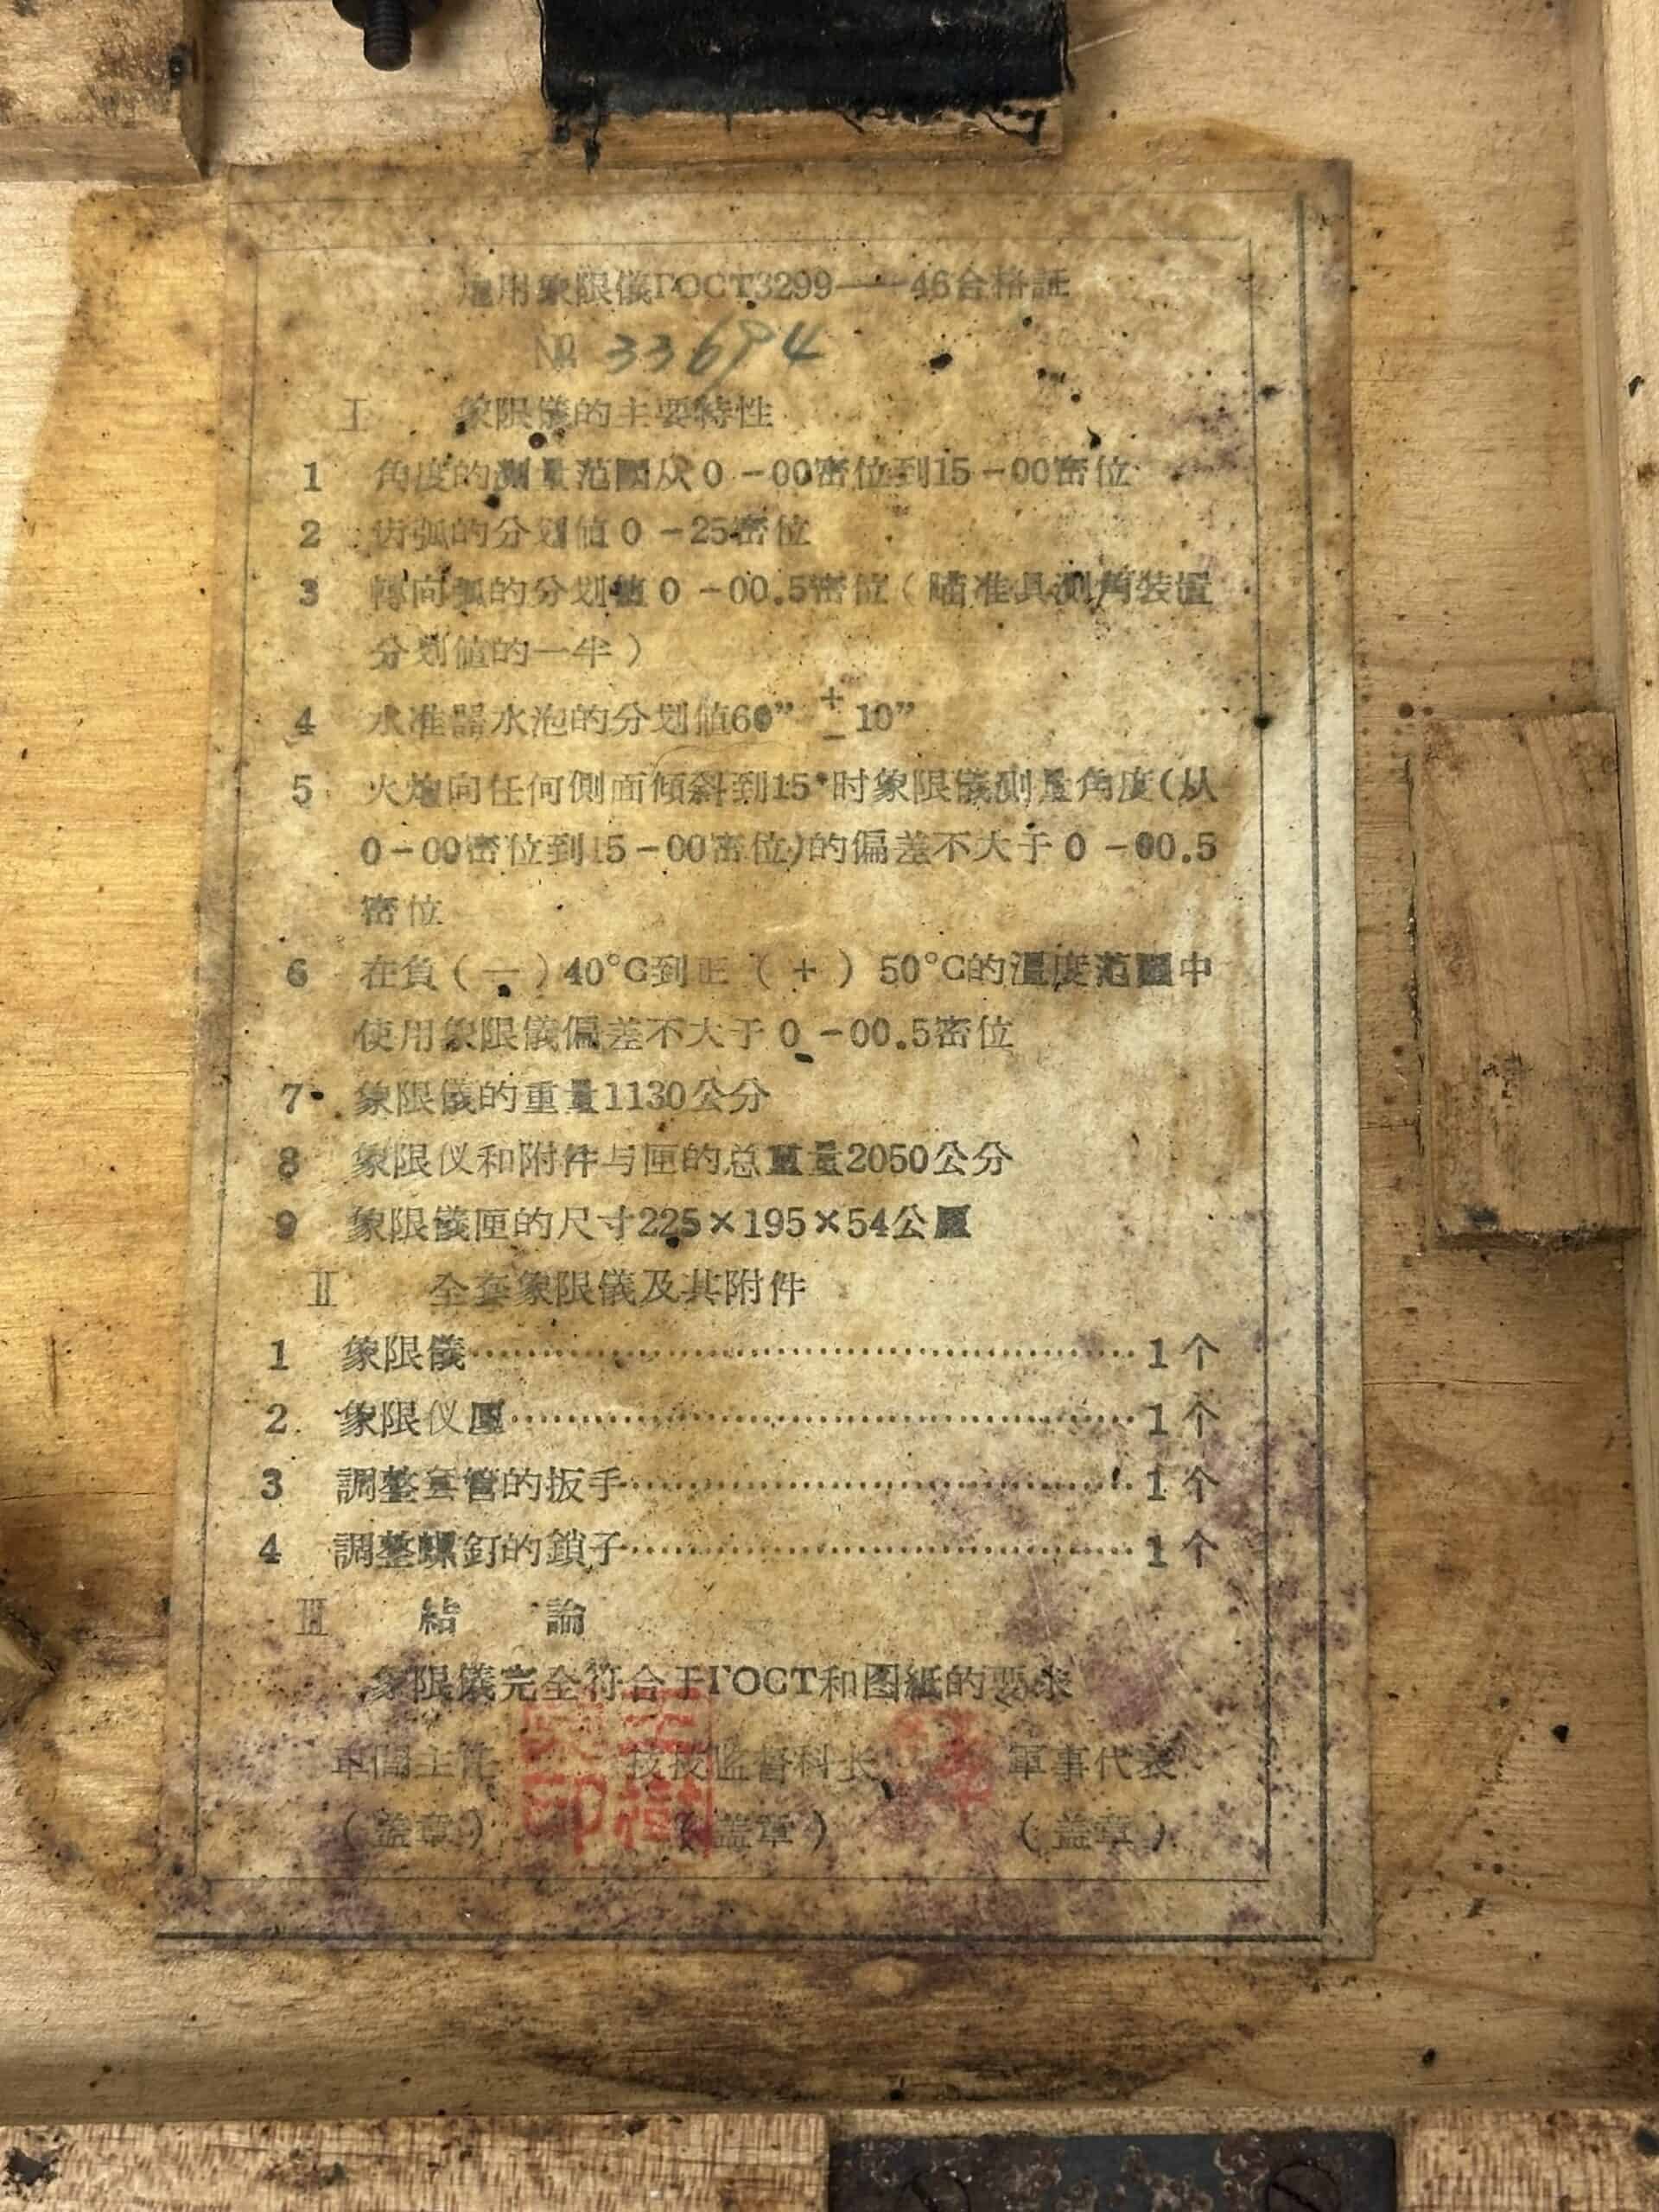 炮用象限儀ГОСТ3299——46合格証
№ 33694
I 象限儀的主要特性
1 角度的測量范圍从0-00密位到15-00密位
2 齿弧的分划值0-25密位
3 轉向弧的分划值0-00.5密位(瞄准具測角裝置
分划值的一半)
4 水准器水泡的分划值60”±10”
5 火炮向任何側面傾斜到15°时象限儀測量角度(从
0-00密位到15-00密位)的偏差不大于0-00.5
密位
6 在負(—)40°C到正(+)50°C的溫度范圍中
使用象限儀偏差不大于0-00.5密位
7 象限儀的重量1130公分
8 象限仪和附件与匣的总重量2050公分
9 象限儀匣的尺寸225×195×54公厘
II 全套象限儀及其附件
1 象限儀…………1个
2 象限仪匣…………1个
3 調整套管的扳手…………1个
4 調整螺釘的鎖子…………1个
III 結 論
象限儀完全符合于ГОСТ和图紙的要求
車間主任 技技監督科长 軍事代表
(盖章) (盖章) (盖章)